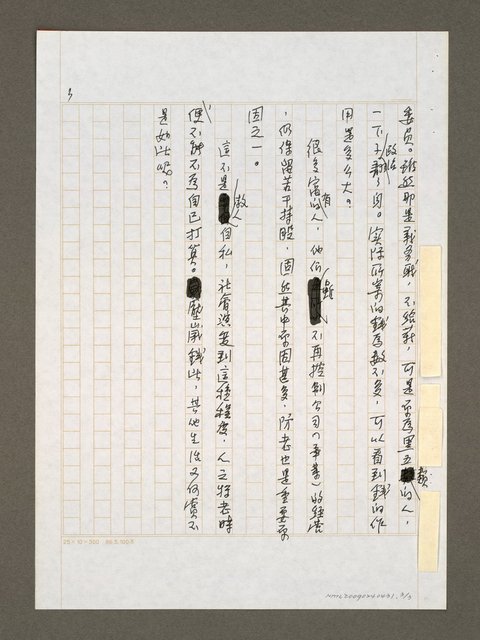 委員。雖然那是戰爭時，不給薪，可是名為黑五類的人，
一下子政治翻了身。實際所業的錢為數不多，可以看到錢的作
用是多么大。
很多富有的人，他們雖不再控制公司（事業）的經營
，仍保留若干持股，固然其中原因甚多，防老也是重要原
因之一。
這不是教人自私，社會演變到這種程度，人之將老時
便不能不為自己打算。壓歲錢此，其他生活又何嘗不
是如此呢？
3
25×10=250 86.5.100本
NMTL20090240431, 3/3